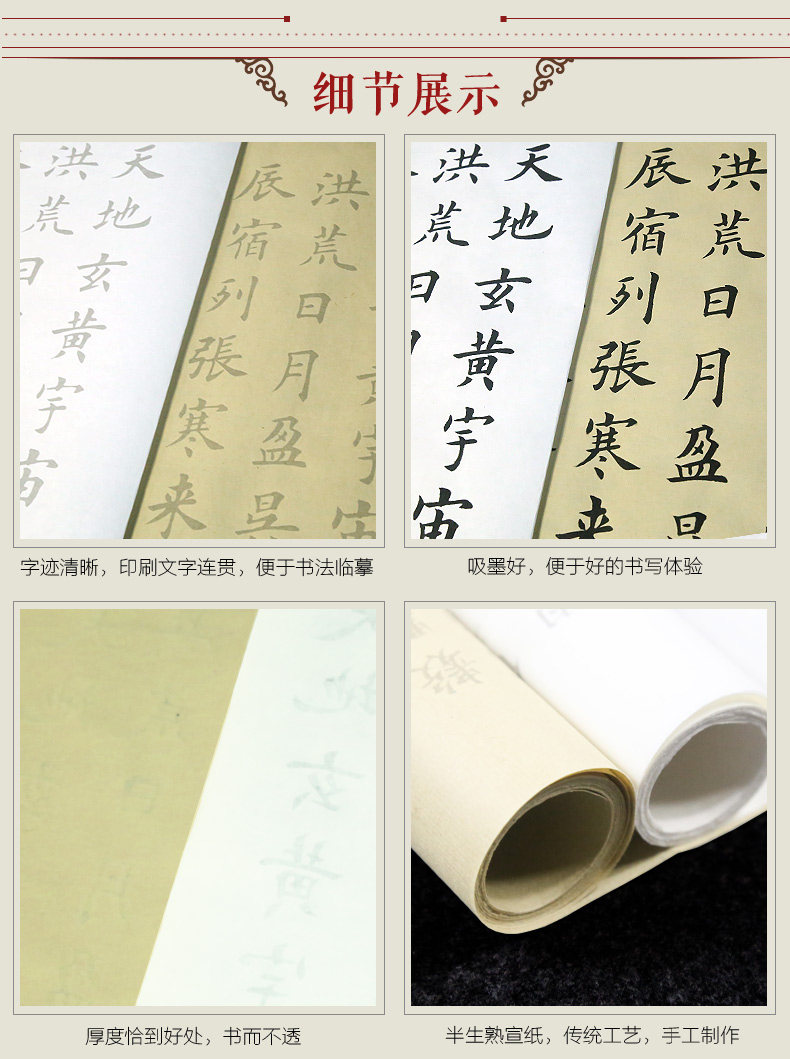 细节展示
黄宇宙
洪荒日月盈昃
辰宿列張寒来
天地玄黄宇宙
洪荒日
洪荒日月盈昃
辰宿列張寒来
天地玄黄宇宙
洪荒日
字迹清晰，印刷文字连贯，便于书法临摹
吸墨好，便于好的书写体验
地玄黄宇
厚度恰到好处，书而不透
半生熟宣纸，传统工艺，手工制作